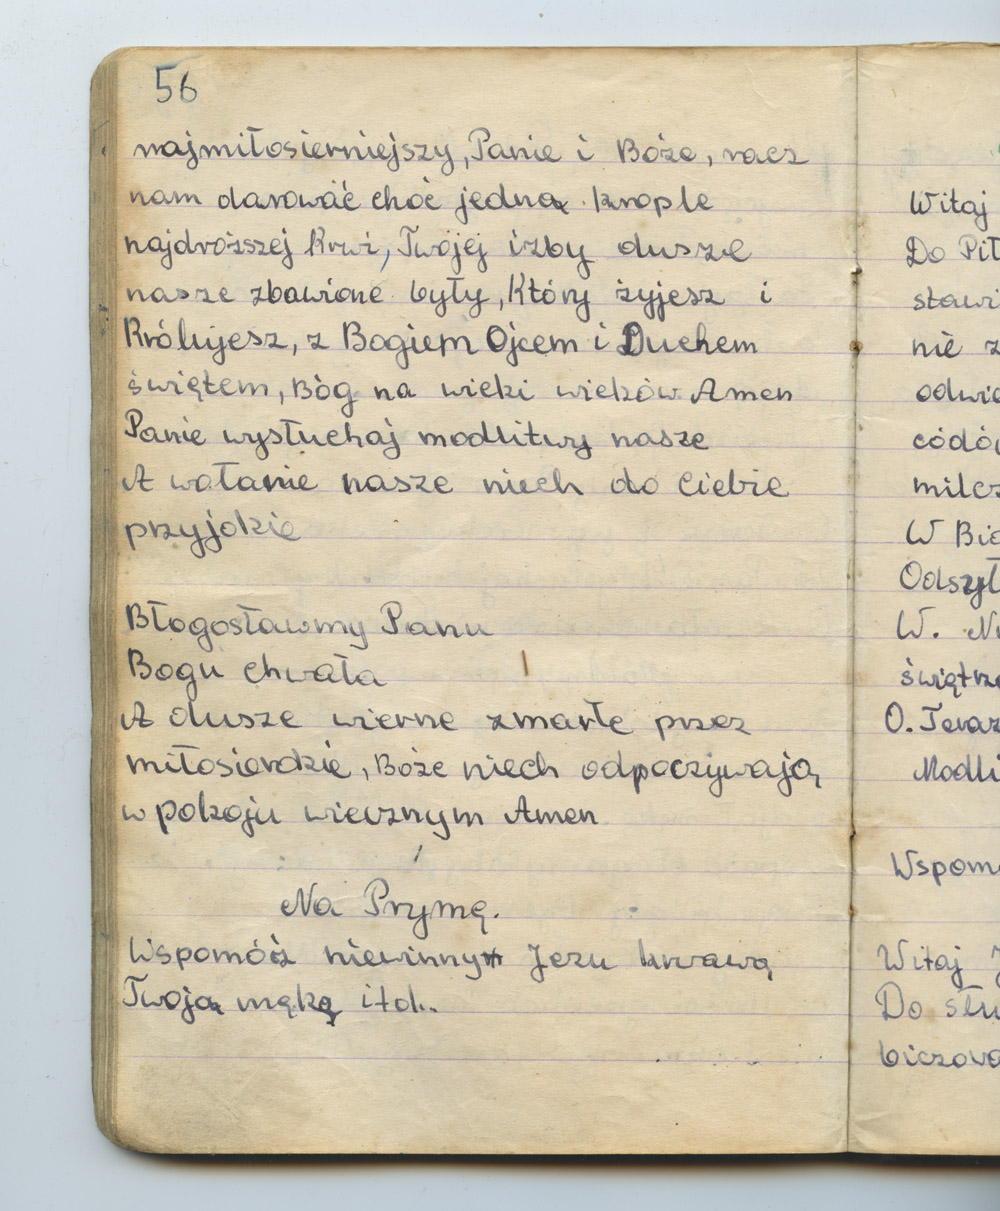 56
najmiłosierniejszy, Panie i Boże, racz
nam darować choć jedną krople
najdroższej Krwi, Twojej iżby dusze
nasze zbawione były, Który żyjesz i
Królujesz, z Bogiem Ojcem i Duchem
świętem, Bóg na wieki wieków Amen
Panie wysłuchaj modlitwy nasze
A wołanie nasze niech do Ciebie
przyjdzie
Błogosławmy Panu
Bogu chwała
A dusze wierne zmarłe przez
miłosierdzie, Boże niech odpoczywają,
w pokoju wiecznym Amen
Na Prymę.
Wspomóż niewinny Jezu krwawą
Twoją mękę itd.
Witaj
Do Pił
stawi
nie z
odwie
códó
milcz
W Bie
Odszył
W. Ni
świątrze
O. Teraz
Modli
Wspomó
Witaj J
Do słu
biczowa